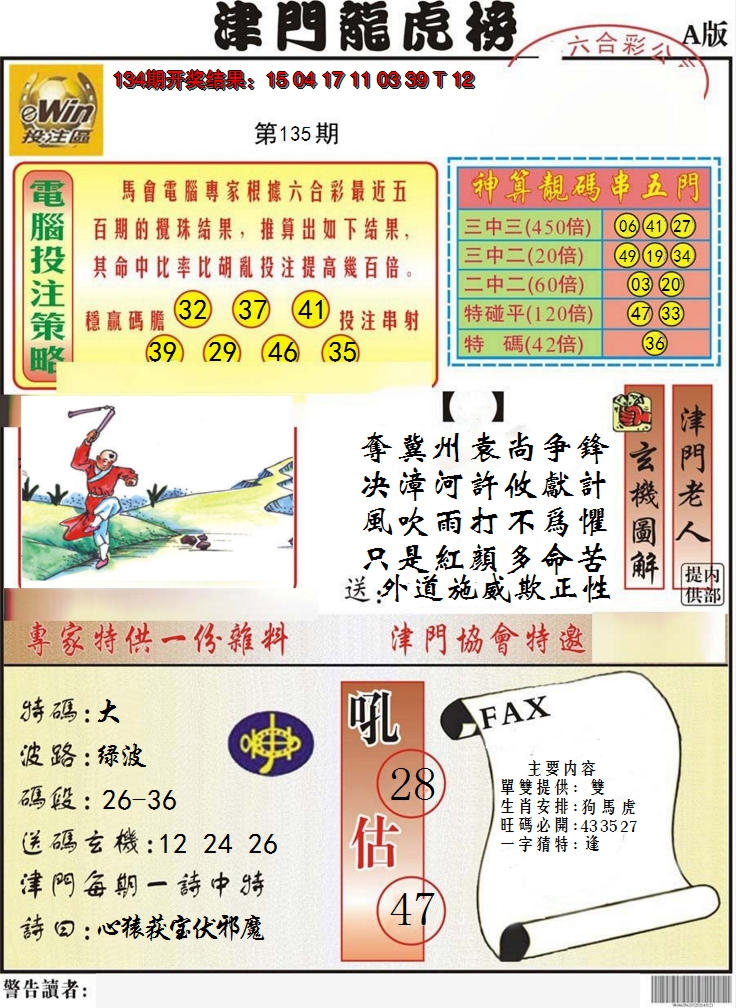 津門龍虎榜
A版
六合彩公
eWin
投注區
134期开奖结果：15 04 17 11 03 39 T 12
第135期
電腦投注策略
馬會電腦專家根據六合彩最近五
百期的攪珠结果，推算出如下结果，
其命中比率比胡亂投注提高幾百倍。
穩贏碼膽 32 37 41 投注串射
39 29 46 35
神算靚碼串五門
三中三(450倍) 06 41 27
三中二(20倍) 49 19 34
二中二(60倍) 03 20
特碰平(120倍) 47 33
特 碼(42倍) 36
【 】
奪冀州袁尚争鋒
决漳河許攸獻計
風吹雨打不爲懼
只是紅顏多命苦
送:外道施威欺正性
玄機圖解
津門老人
内部提供
專家特供一份雜料
津門協會特邀
特碼:大
波路:绿波
碼段:26-36
送碼玄機:12 24 26
津門每期一詩中特
詩曰:心猿获宝伏邪魔
吼
28
估
47
FAX
主要内容
單雙提供：雙
生肖安排:狗馬虎
旺碼必開:433527
一字猜特：逢
警告讀者：